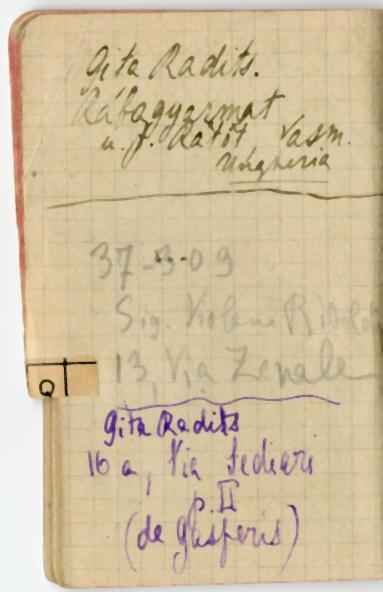 Gita Radits.
Rábagyarmat
u. p. Rátót Vasm.
Ungheria
37-3-09
Sig. Violena
13, Via Zenale
Q
Gita Radits
16 a, Via Sediari
p. II
(de Gasperis)